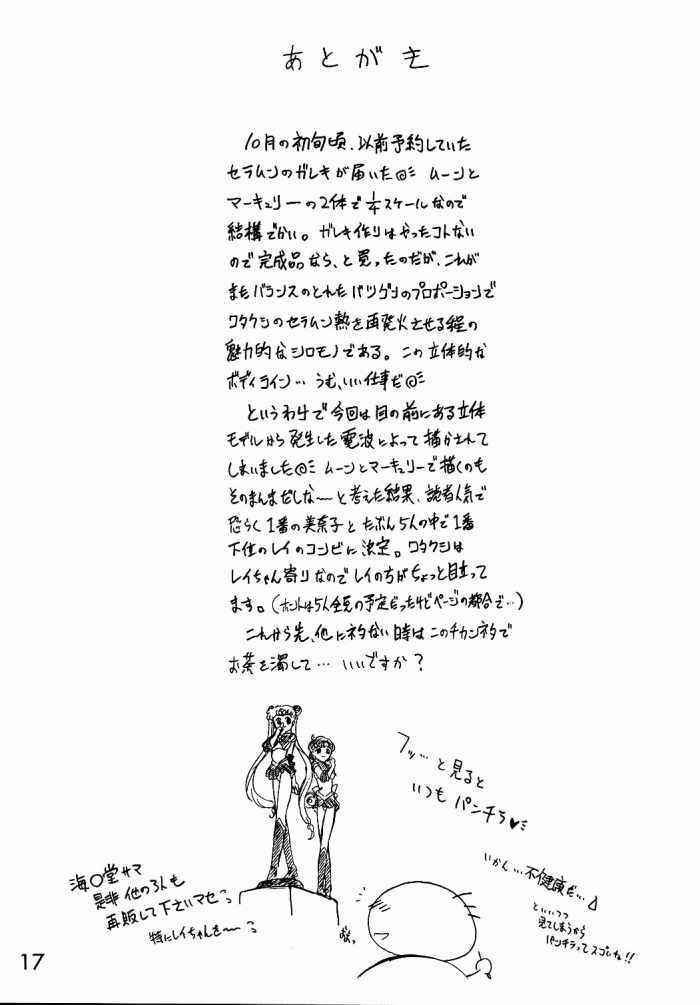 あとがき
10月の初旬頃、以前予約していた
セラムンのガレキが届いた ムーンと
マーキュリーの2体で1/4スケールなので
結構でかい。ガレキ作りはやったコトない
ので完成品なら、と買ったのだが、これが
またバランスのとれたバツグンのプロポーションで
ワタクシのセラムン熱を再発火させる程の
魅力的なシロモノである。この立体的な
ボディライン… うむ、いい仕事だ
というわけで今回は目の前にある立体
モデルから発生した電波によって描かされて
しまいました ムーンとマーキュリーで描くのも
そのまんまだしな〜と考えた結果、読者人気で
恐らく1番の美奈子とたぶん5人の中で1番
下位のレイのコンビに決定。ワタクシは
レイちゃん寄りなのでレイの方がちょっと目立って
ます。(ホントは5人全員の予定だったけどページの都合で…)
これから先、他にネタない時はこのチカンネタで
お茶を濁して… いいですか?
フッ…と見ると
いつもパンチラ♥
海〇堂サマ
是非他の3人も
再販して下さいマセ
特にレイちゃんを〜
いかん…不健康だ…
といいつつ
見てしまうから
パンチラってスゴいね!!
17